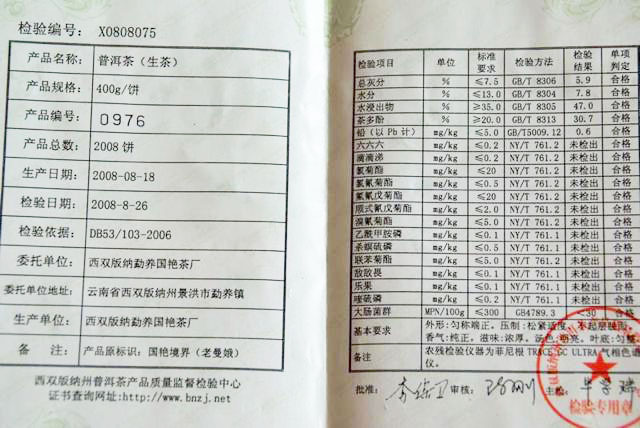 检验编号: X0808075
产品名称: 普洱茶（生茶）
产品规格: 400g/饼
产品编号: 0976
产品总数: 2008 饼
生产日期: 2008-08-18
检验日期: 2008-8-26
检验依据: DB53/103-2006
委托单位: 西双版纳勐养国艳茶厂
委托单位地址: 云南省西双版纳州景洪市勐养镇
生产单位: 西双版纳勐养国艳茶厂
备 注: 产品原标识：国艳境界（老曼娥）
西双版纳州普洱茶产品质量监督检验中心
证书查询网址:http://www.bnzj.net
检验项目 单位 标准要求 检验方法 检验结果 单项判定
总灰分 % ≤7.5 GB/T 8306 5.9 合格
水分 % ≤13.0 GB/T 8304 7.8 合格
水浸出物 % ≥35.0 GB/T 8305 47.0 合格
茶多酚 % ≥20.0 GB/T 8313 30.7 合格
铅（以 Pb 计） mg/kg ≤5.0 GB/T5009.12 0.6 合格
六六六 mg/kg ≤0.2 NY/T 761.2 未检出 合格
滴滴涕 mg/kg ≤0.2 NY/T 761.2 未检出 合格
氯菊酯 mg/kg ≤20 NY/T 761.2 未检出 合格
氯氰菊酯 mg/kg ≤0.5 NY/T 761.2 未检出 合格
氟氰戊菊酯 mg/kg ≤20 NY/T 761.2 未检出 合格
顺式氰戊菊酯 mg/kg ≤2.0 NY/T 761.2 未检出 合格
溴氰菊酯 mg/kg ≤5.0 NY/T 761.2 未检出 合格
乙酰甲胺磷 mg/kg ≤0.1 NY/T 761.1 未检出 合格
杀螟硫磷 mg/kg ≤0.5 NY/T 761.1 未检出 合格
联苯菊酯 mg/kg ≤5.0 NY/T 761.2 未检出 合格
敌敌畏 mg/kg ≤0.1 NY/T 761.1 未检出 合格
乐果 mg/kg ≤0.1 NY/T 761.1 未检出 合格
喹硫磷 mg/kg ≤0.2 NY/T 761.1 未检出 合格
大肠菌群 MPN/100g ≤300 GB4789.3 <30 合格
基本要求 外形: 匀称端正。压制: 松紧适度、不起层脱面。
香气: 纯正。滋味: 浓厚。汤色: 明亮。叶底: 匀整
备注 农残检验仪器为菲尼根 TRACE GC ULTRA 气相色谱仪。
批准: 审核: 主检:
检验专用章